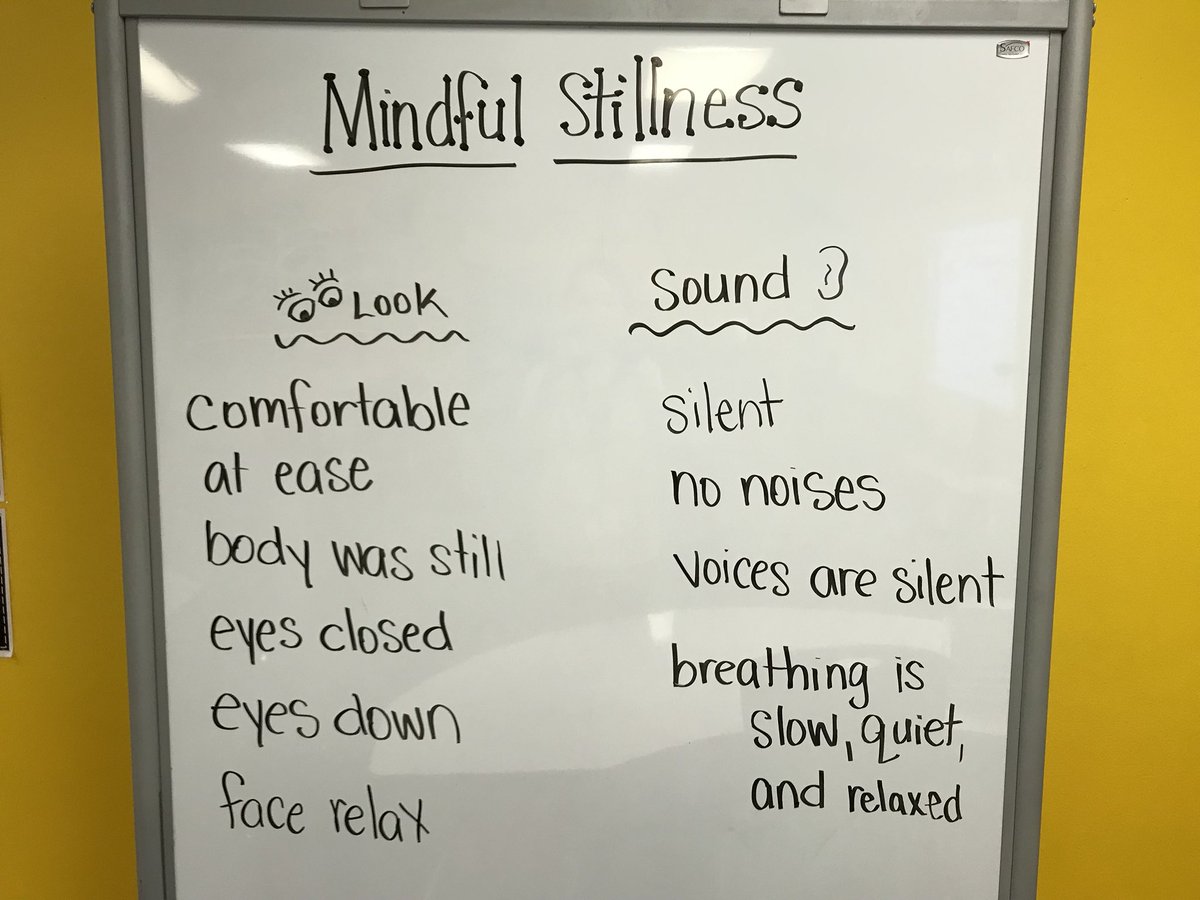 SAFCO
Mindful Stillness
Look
comfortable
at ease
body was still
eyes closed
eyes down
face relax
Sound
silent
no noises
voices are silent
breathing is
slow, quiet,
and relaxed